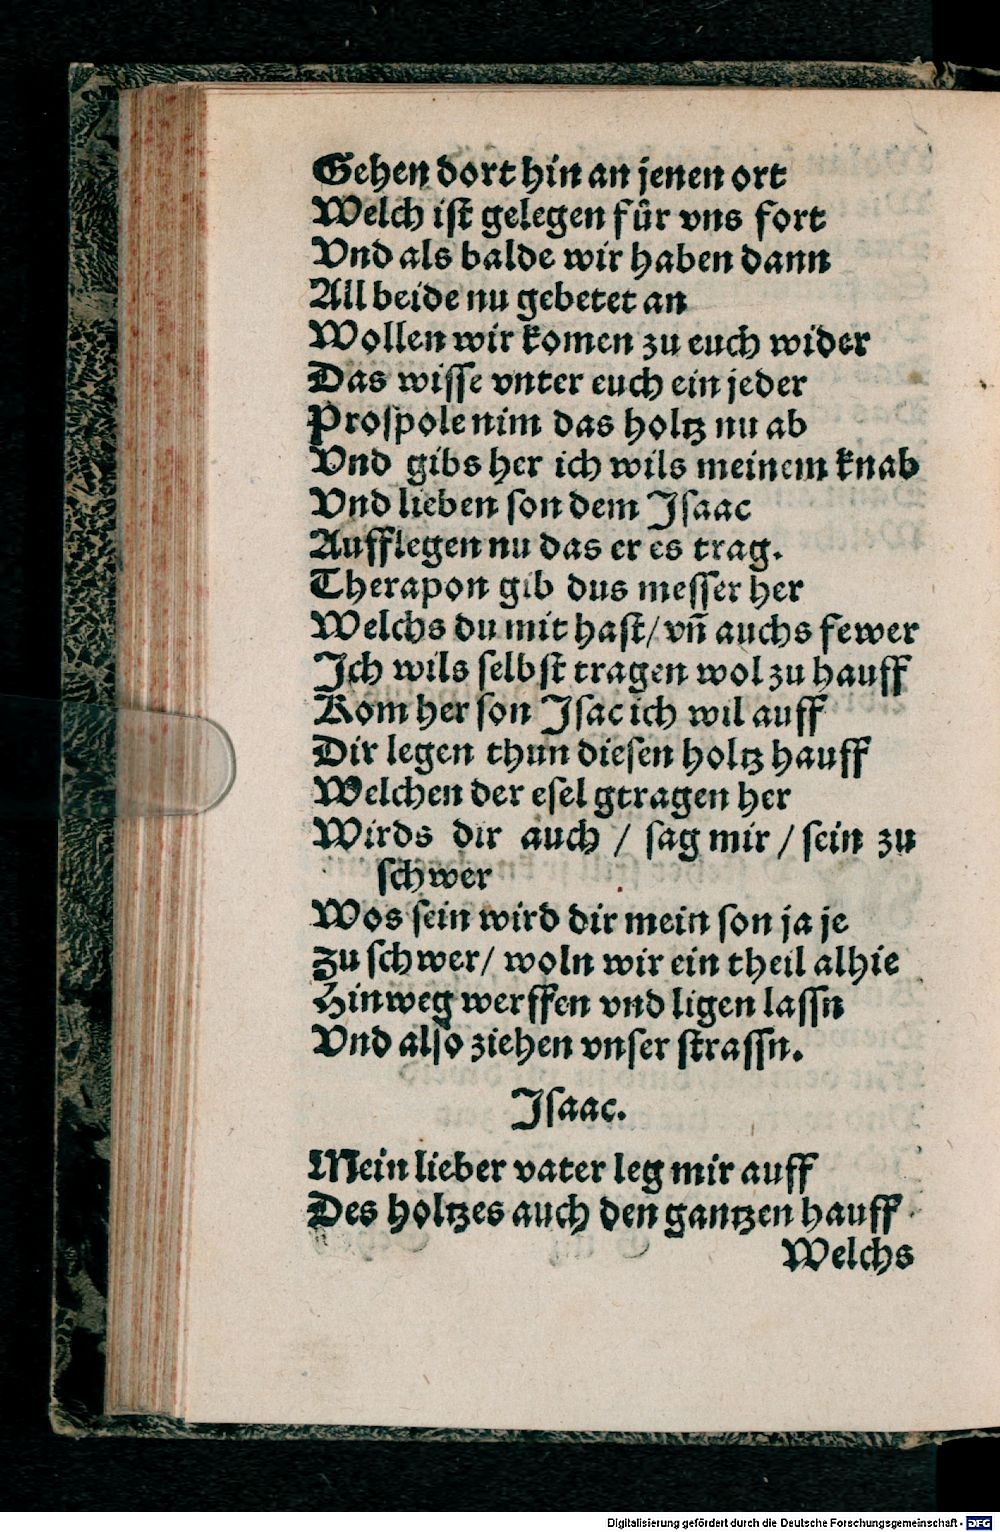 Gehen dort hin an jenen ort
Welch iſt gelegen fuͤr vns fort
Vnd als balde wir haben dann
All beide nu gebetet an
Wollen wir komen zu euch wider
Das wiſſe vnter euch ein jeder
Proſpole nim das holtz nu ab
Vnd gibs her ich wils meinem knab
Vnd lieben ſon dem Iſaac
Aufflegen nu das er es trag.
Therapon gib dus meſſer her
Welchs du mit haſt/ vn̄ auchs fewer
Ich wils ſelbſt tragen wol zu hauff
Kom her ſon Iſac ich wil auff
Dir legen thun dieſen holtz hauff
Welchen der eſel gtragen her
Wirds dir auch / ſag mir / ſein zu
ſchwer
Wos ſein wird dir mein ſon ja je
Zu ſchwer/ woln wir ein theil alhie
Hinweg werffen vnd ligen laſſn
Vnd alſo ziehen vnſer ſtraſſn.
Iſaac.
Mein lieber vater leg mir auff
Des holtzes auch den gantzen hauff
Welchs
Digitalisierung gefördert durch die Deutsche Forschungsgemeinschaft - DFG